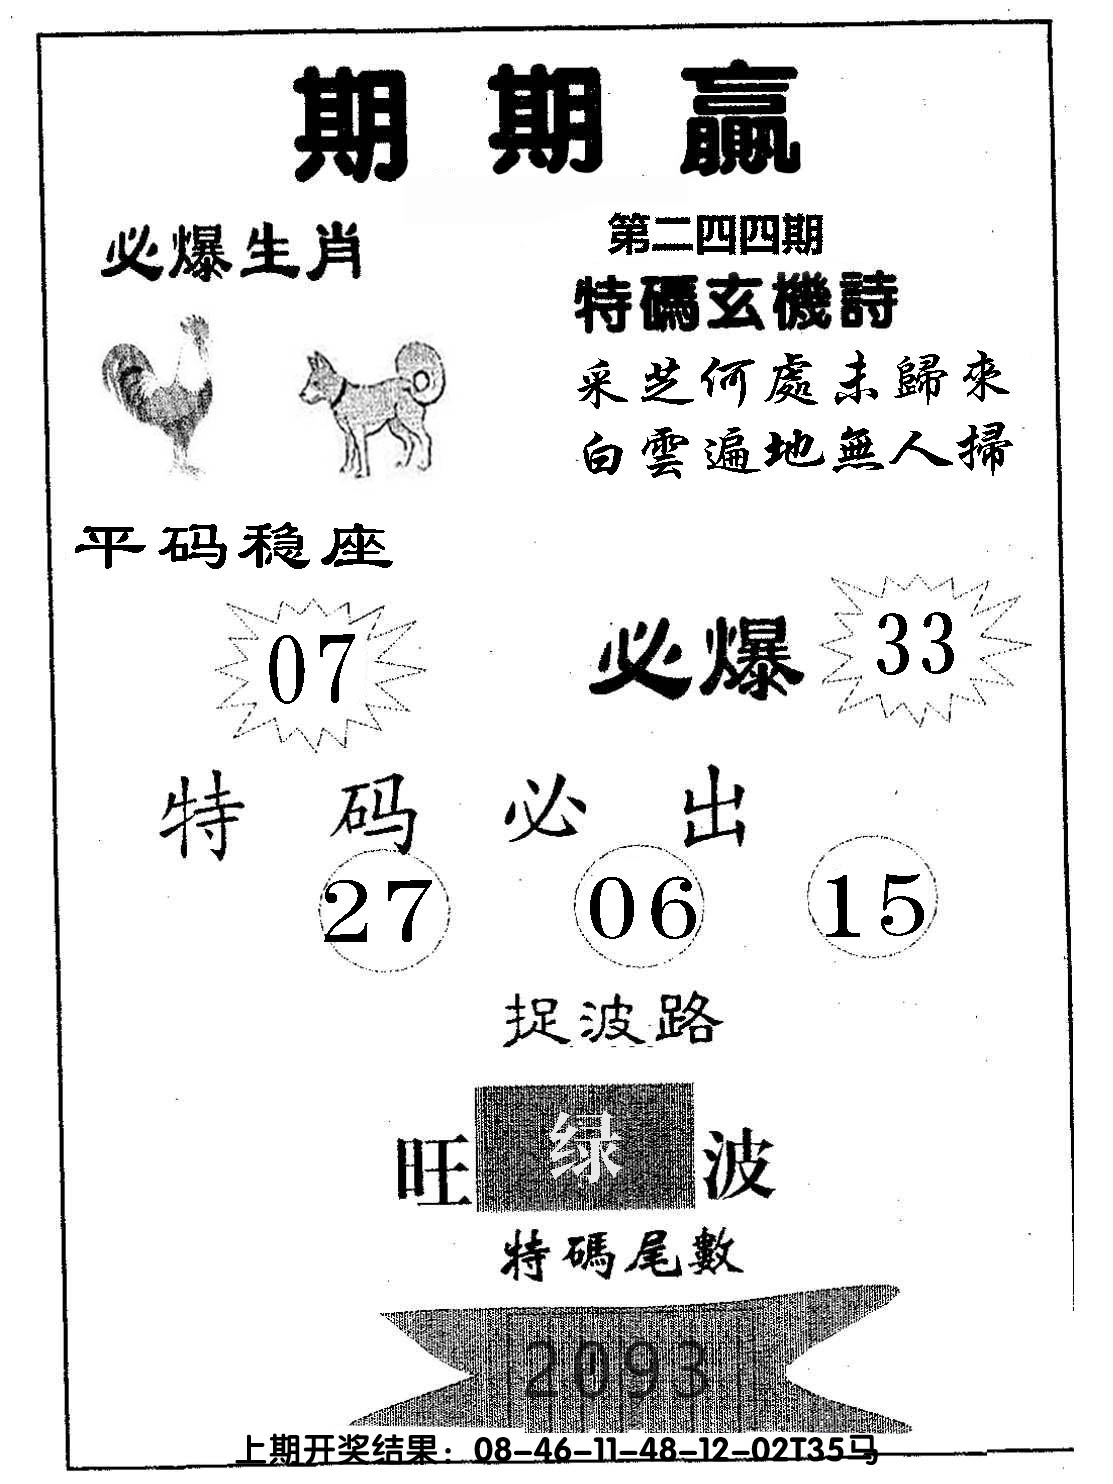 期期赢
必爆生肖
第二四四期
特碼玄機詩
采芝何處未歸來
白雲遍地無人掃
平码稳座
07
必爆 33
特码必出
27 06 15
捉波路
旺 绿 波
特碼尾數
2093
上期开奖结果：08-46-11-48-12-02T35马